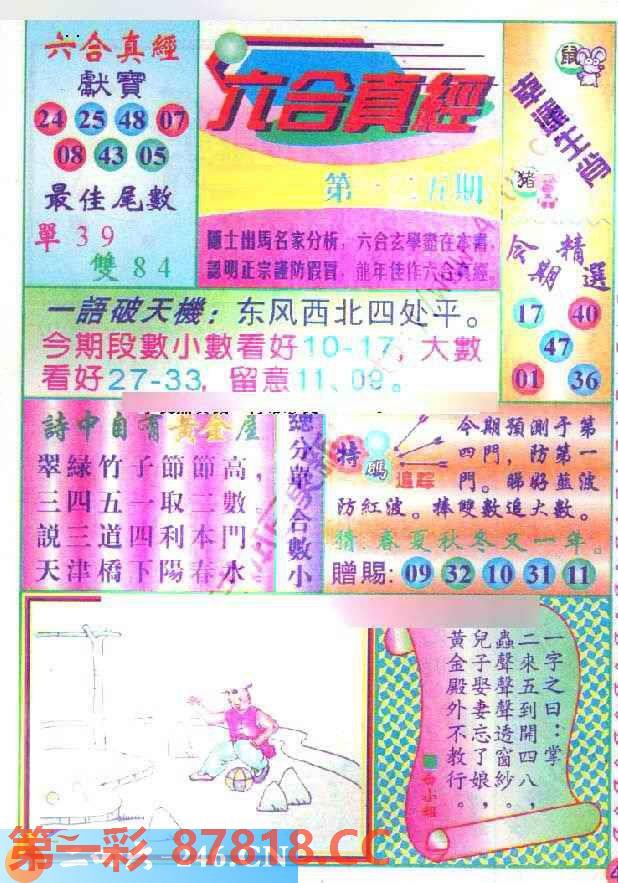 六合真經
獻寶
24 25 48 07
08 43 05
最佳尾數
單39
雙84
六合真經
第一二五期
隱士出馬名家分析,六合玄學盡在本書,
認明正宗謹防假冒,龍年佳作六合真經。
鼠
幸運生肖
豬
今期精選
17 40
47
01 36
一語破天機:东风西北四处平。
今期段數小數看好10-17,大數
看好27-33,留意11、09。
詩中自有黃金屋
翠綠竹子節節高,
三四五一取二數。
説三道四利本門
天津橋下陽春水
總分單合數小
特碼
追踪
今期預測于第
四門,防第一
門。睇好藍波
防紅波。捧雙數追大數。
猜:春夏秋冬又一年。
贈賜:09 32 10 31 11
一字之曰:掌
二來五到開四八,
蟲聲聲聲透窗紗。
兒子娶妻忘了娘,
黃金殿外不教行。
白小姐
第一彩 87818.CC
246.CN